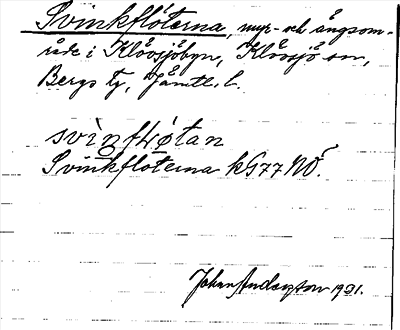 Svinkflöterna, myr- och ängsom-
råde i Klövsjöbyn, Klövsjö sn,
Bergs tg, Jämtl. l.
svìnfɫøtan
Svinkflöterna kG77NÖ.
Johan Anderson 1931.